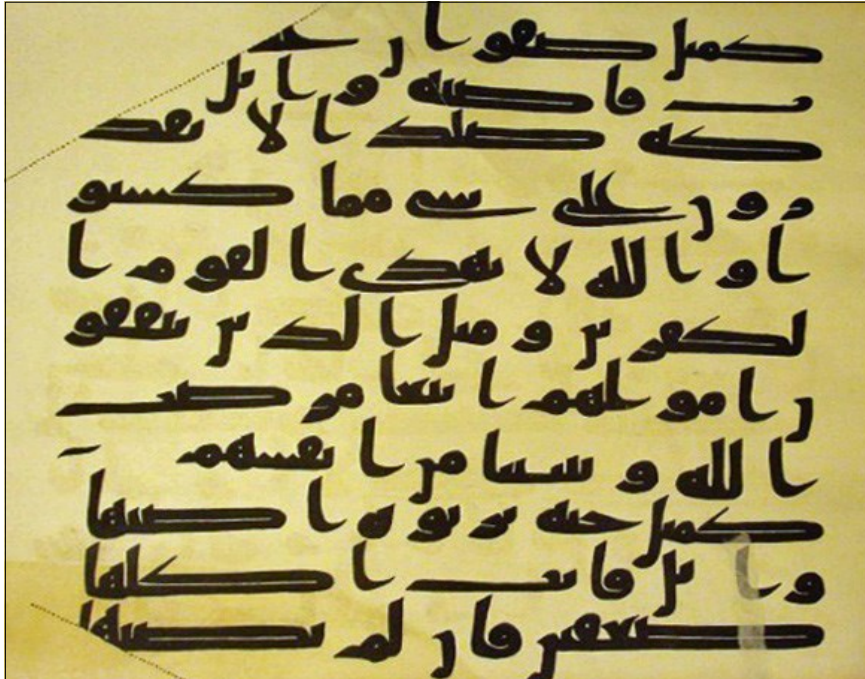 كمثل صفوان
ب فاصبه وابل
كه صلدا لا يقد
رون على شى مما كسبو
ا والله لا يهدى القوم ا
لكفرين ومثل الذين ينفقو
ن امولهم ابتغا مرضت
الله وتثبيتا من انفسهم
كمثل جنة بربوة اصبها
وابل فاتت اكلها
ضعفين فان لم يصبها